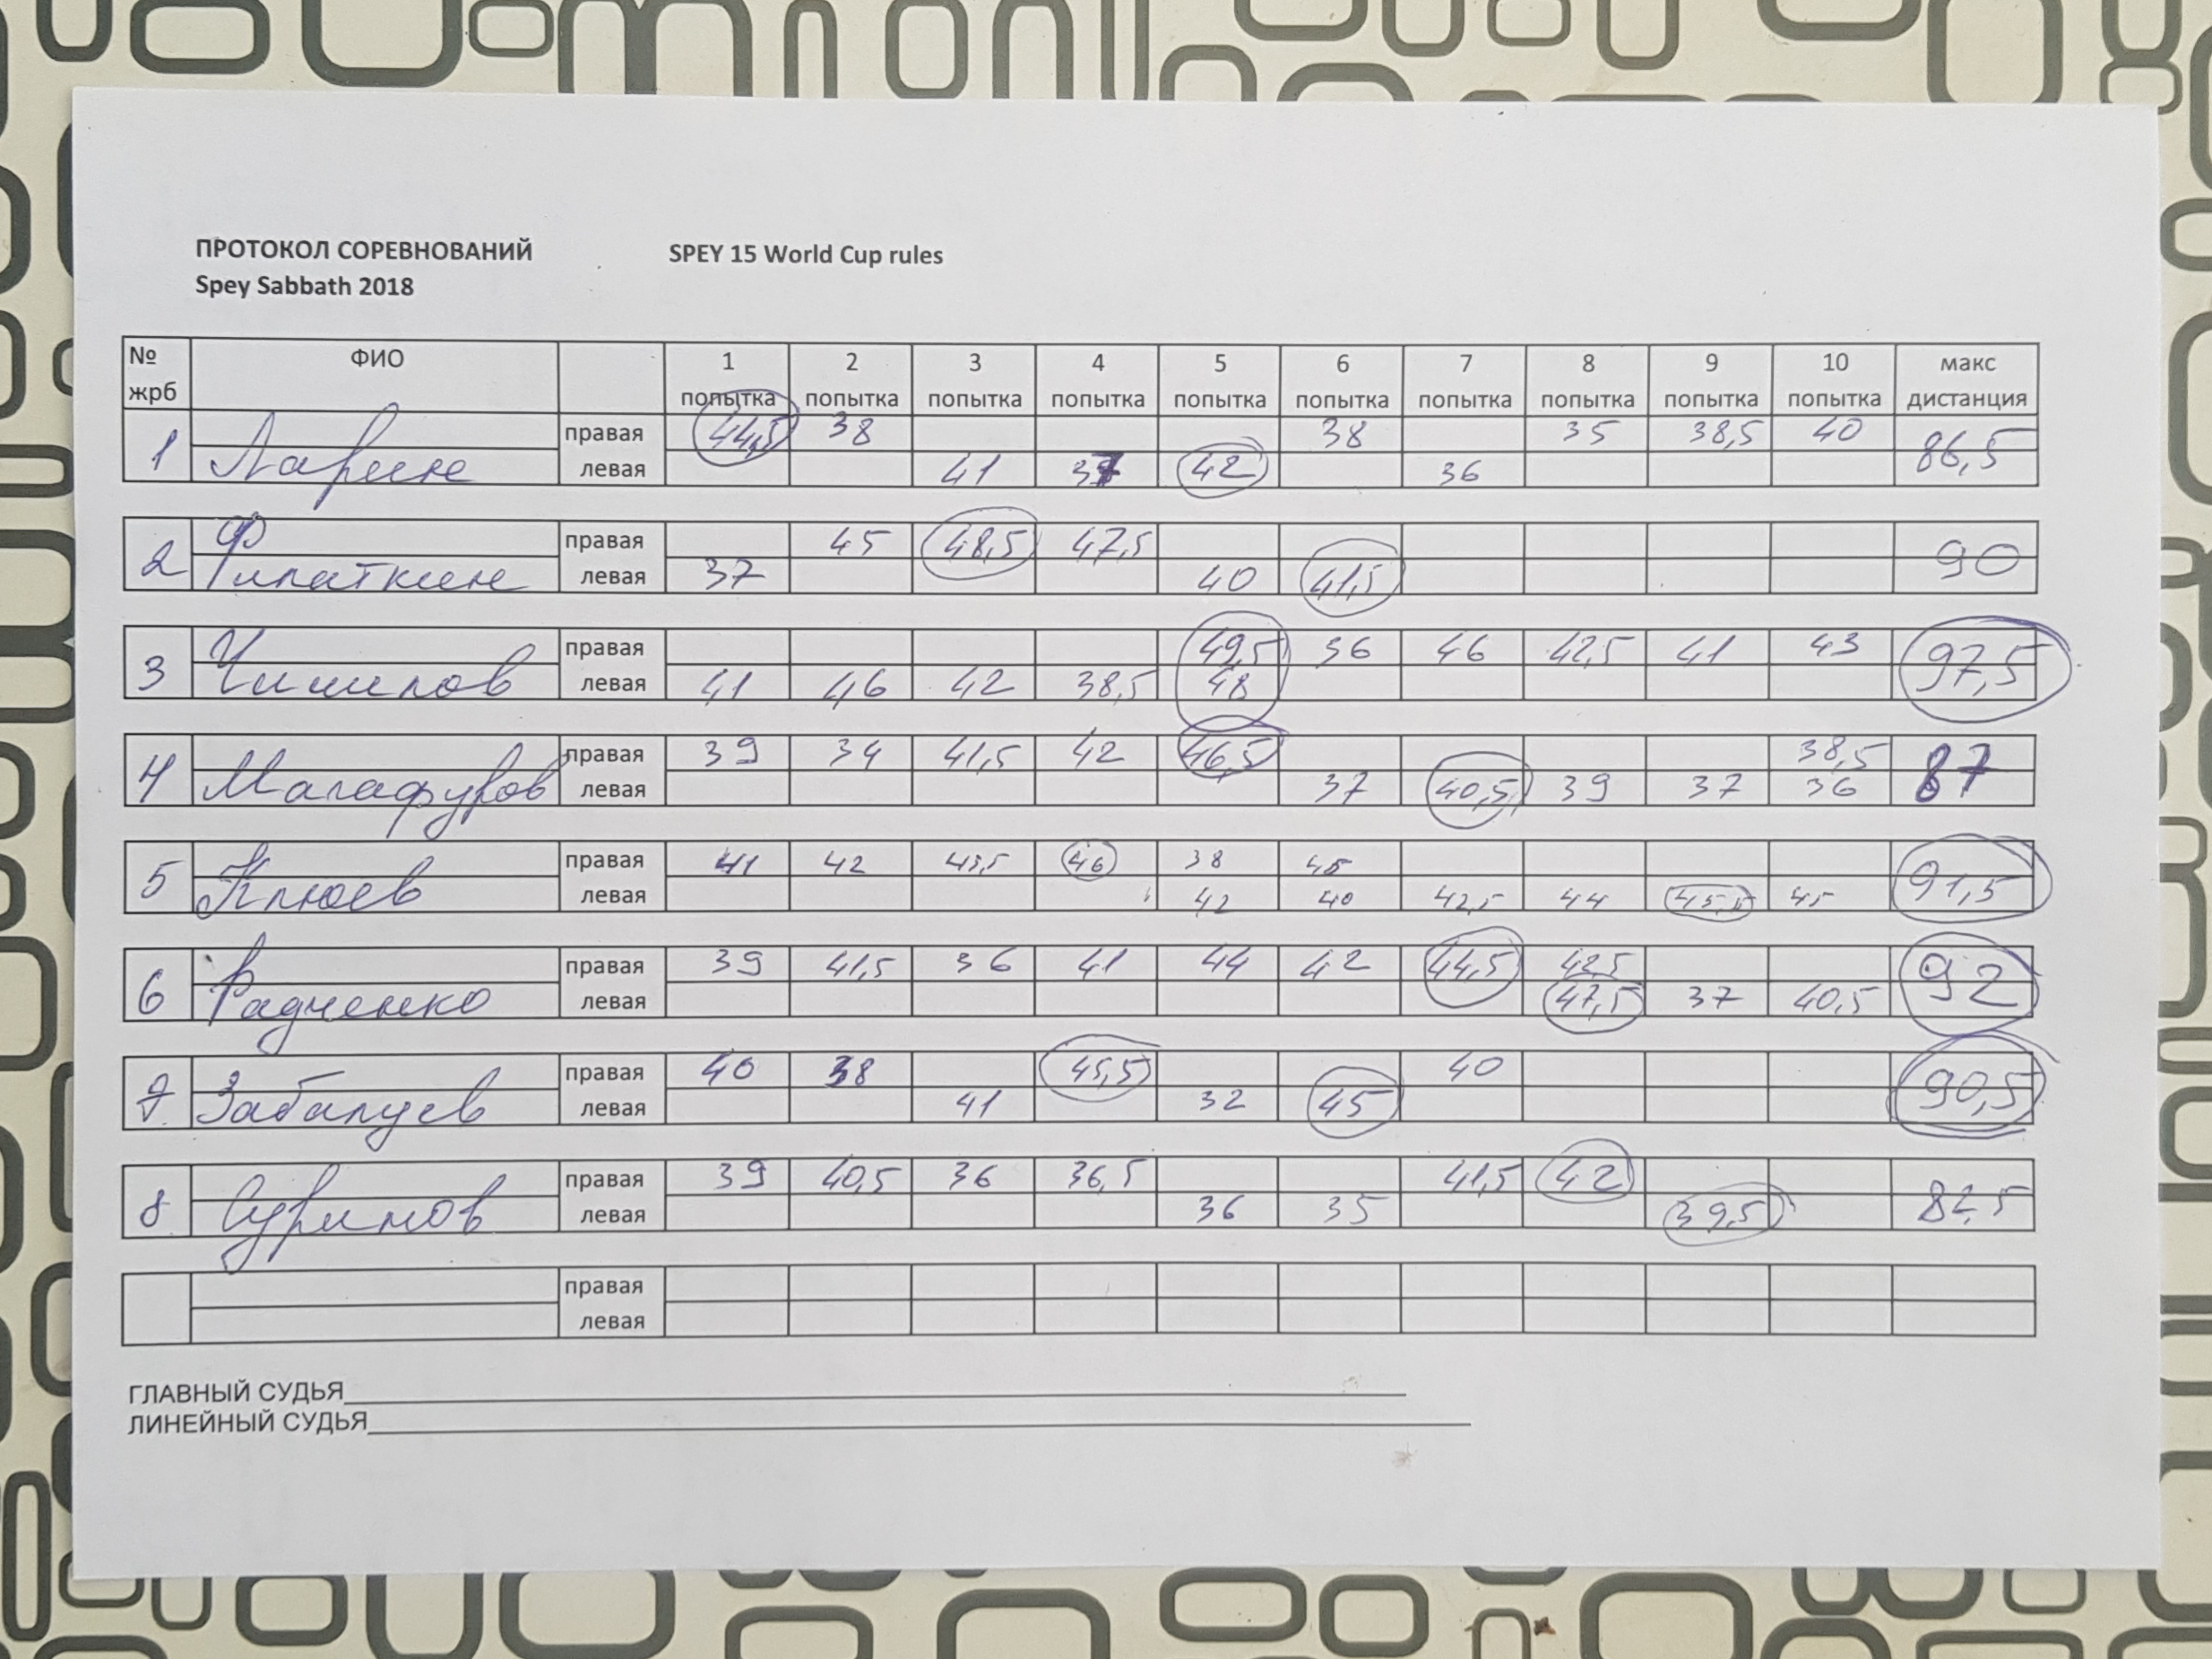 ПРОТОКОЛ СОРЕВНОВАНИЙ SPEY 15 World Cup rules
Spey Sabbath 2018
№ жрб ФИО 1 попытка 2 попытка 3 попытка 4 попытка 5 попытка 6 попытка 7 попытка 8 попытка 9 попытка 10 попытка макс дистанция
1 Ларин правая 44,5 38 38 35 38,5 40 86,5
левая 41 37 42 36
2 Филаткин правая 45 48,5 47,5 90
левая 37 40 41,5
3 Чишилов правая 49,5 36 46 42,5 41 43 97,5
левая 41 46 42 38,5 48
4 Малафуров правая 39 34 41,5 42 46,5 38,5 87
левая 37 40,5 39 37 36
5 Клюев правая 41 42 43,5 46 38 45 91,5
левая 42 40 42,5 44 45,5 45
6 Радченко правая 39 41,5 36 41 44 42 44,5 42,5 92
левая 47,5 37 40,5
7 Забалуев правая 40 38 45,5 40 90,5
левая 41 32 45
8 Суринов правая 39 40,5 36 36,5 41,5 42 82,5
левая 36 35 39,5
правая
левая
ГЛАВНЫЙ СУДЬЯ
ЛИНЕЙНЫЙ СУДЬЯ